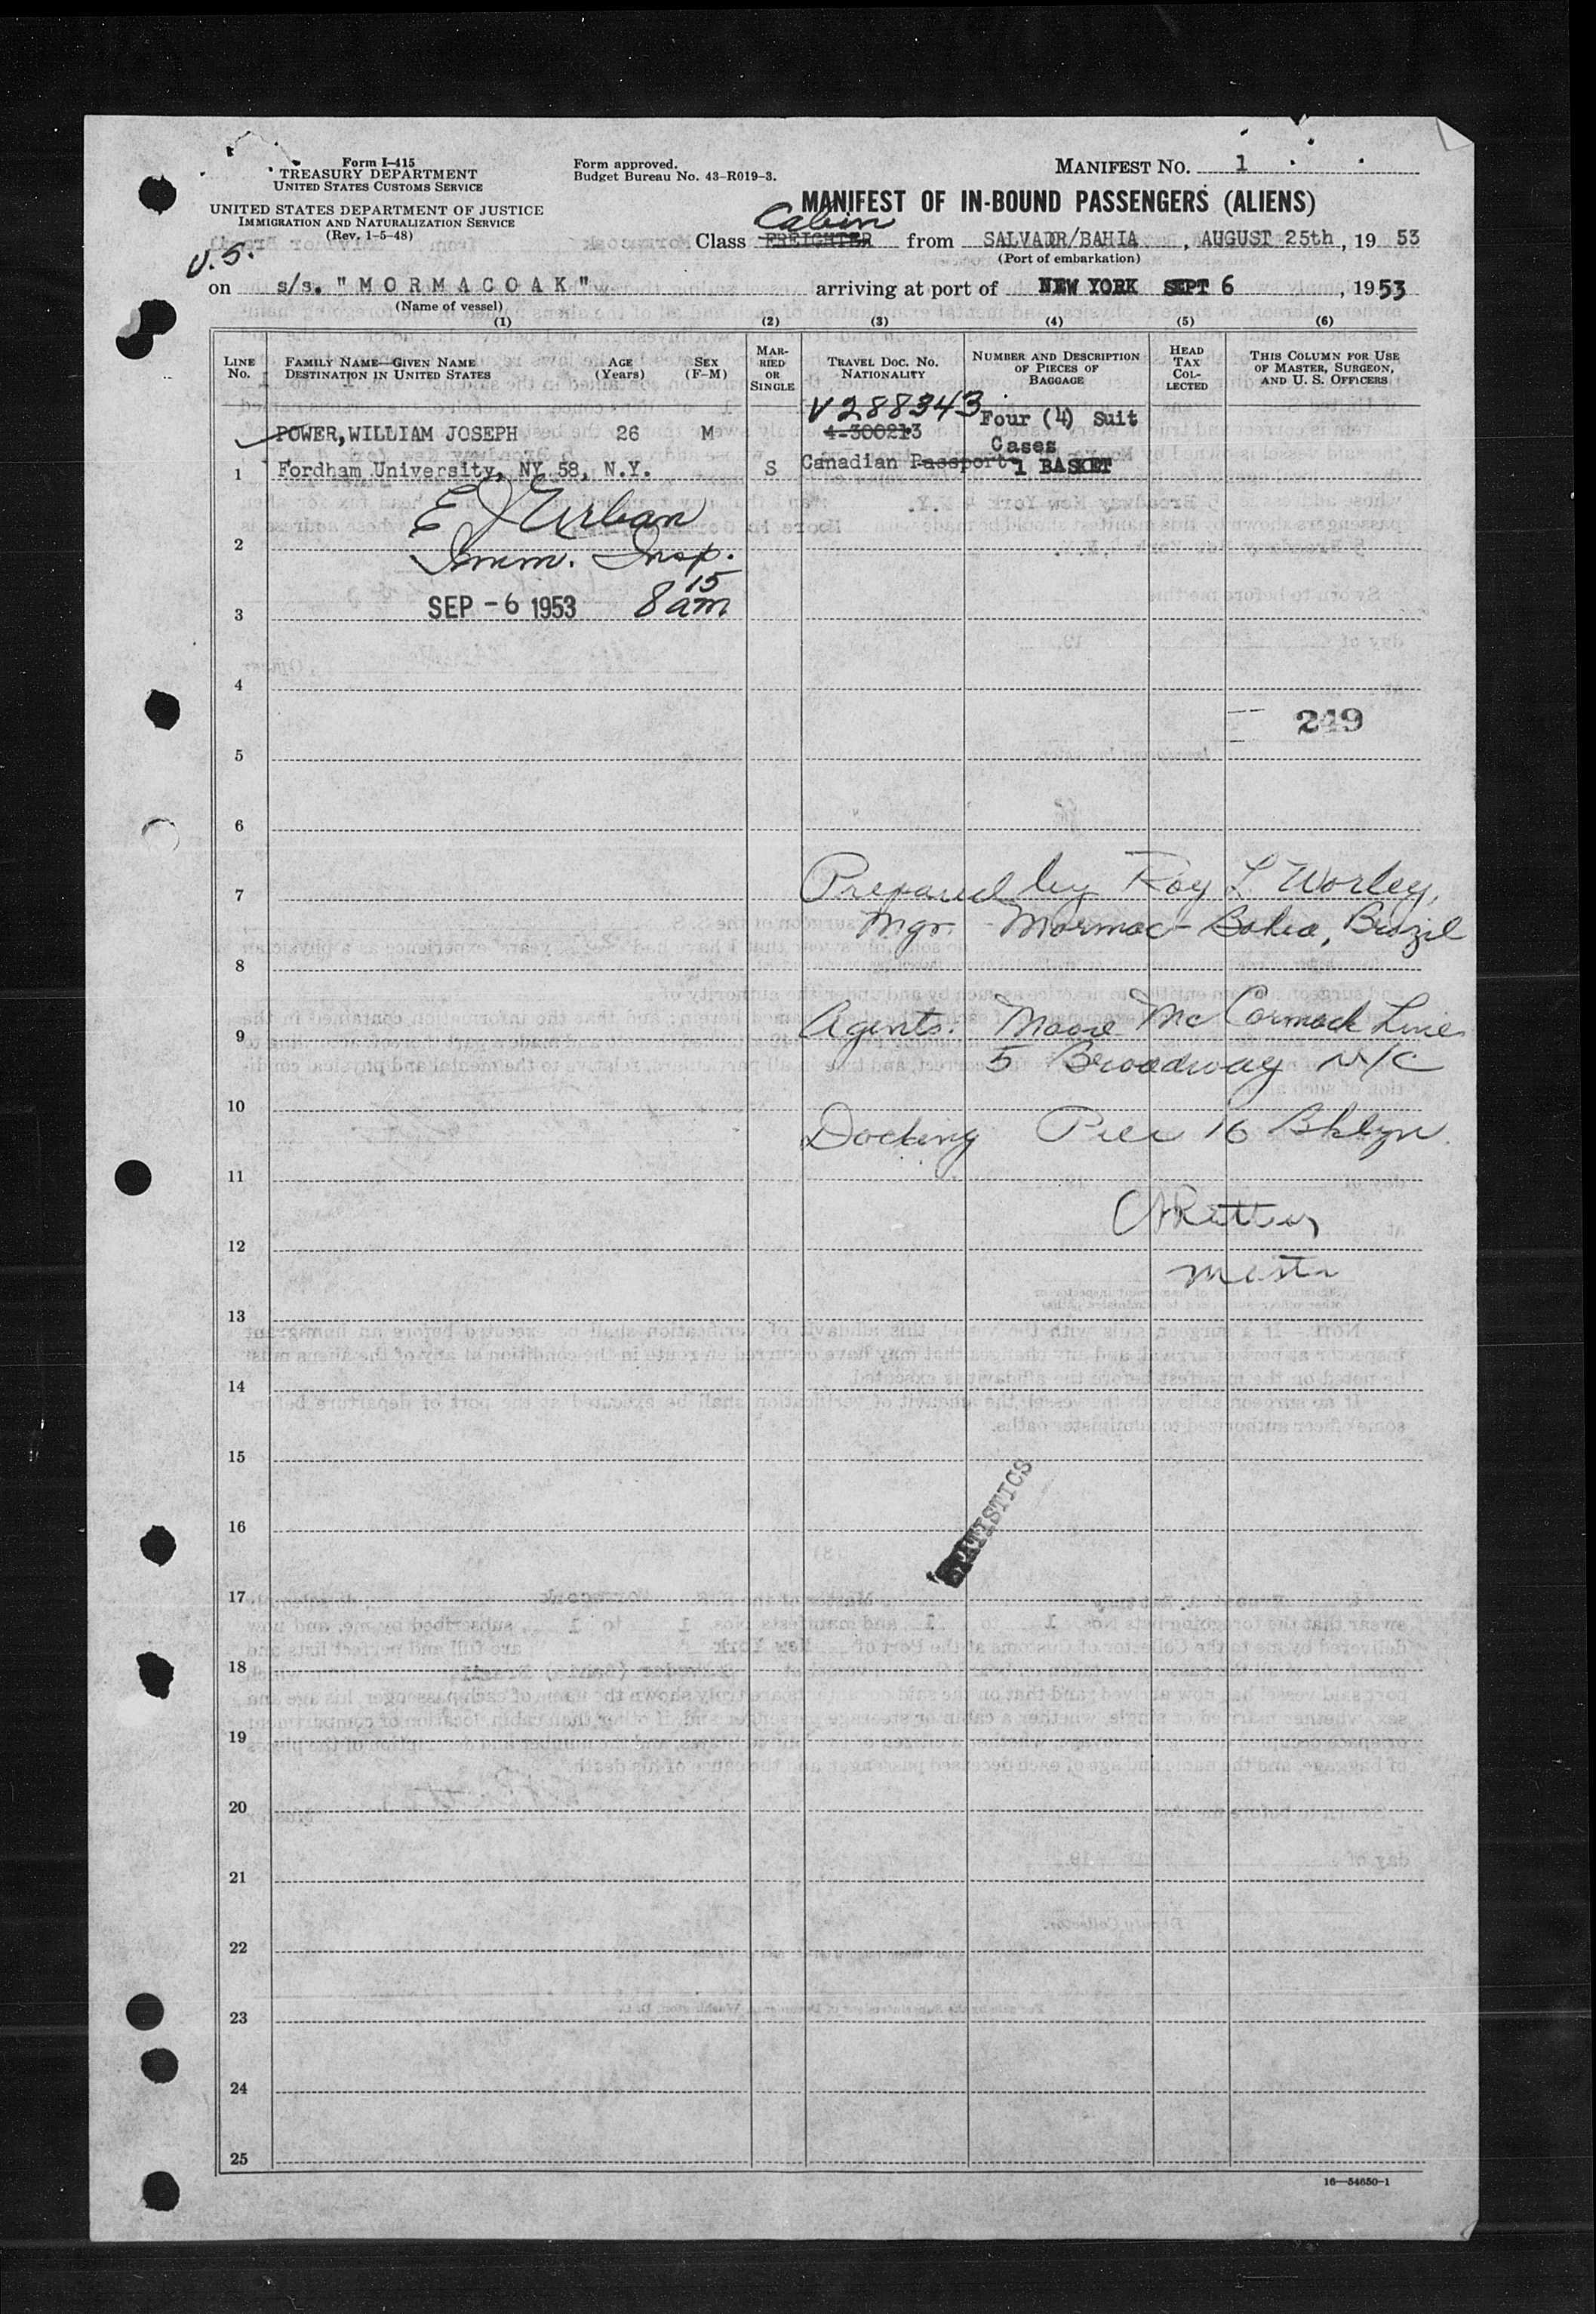 Form I-415
TREASURY DEPARTMENT
UNITED STATES CUSTOMS SERVICE
UNITED STATES DEPARTMENT OF JUSTICE
IMMIGRATION AND NATURALIZATION SERVICE
(Rev. 1-5-48)
Form approved.
Budget Bureau No. 43-R019-3.
MANIFEST NO. 1
MANIFEST OF IN-BOUND PASSENGERS (ALIENS)
Cabin
Class FREIGHTER from SALVADR/BAHIA, AUGUST 25th, 19 53
(Port of embarkation)
U.S.
on s/s. "MORMACOAK" arriving at port of NEW YORK SEPT 6, 1953
(Name of vessel)
(1) (2) (3) (4) (5) (6)
LINE No. FAMILY NAME—GIVEN NAME DESTINATION IN UNITED STATES AGE (Years) SEX (F-M) MARRIED OR SINGLE TRAVEL DOC. NO. NATIONALITY NUMBER AND DESCRIPTION OF PIECES OF BAGGAGE HEAD TAX COLLECTED THIS COLUMN FOR USE OF MASTER, SURGEON, AND U. S. OFFICERS
V288343 Four (4) Suit
POWER, WILLIAM JOSEPH 26 M 4-300213 Cases
1 Fordham University, NY 58, N.Y. S Canadian Passport 1 BASKET
E J Urban
2 Imm. Insp.
3 SEP -6 1953 8 15 am
4
249
5
6
7 Prepared by Roy L. Worley,
Mgr. Mormac - Bahia, Brazil
8
9 Agents: Moore McCormack Line
5 Broadway NYC
10
Docking Pier 16 Bklyn.
11
12
13
14
15
STATISTICS
16
17
18
19
20
21
22
23
24
25
16—54650-1